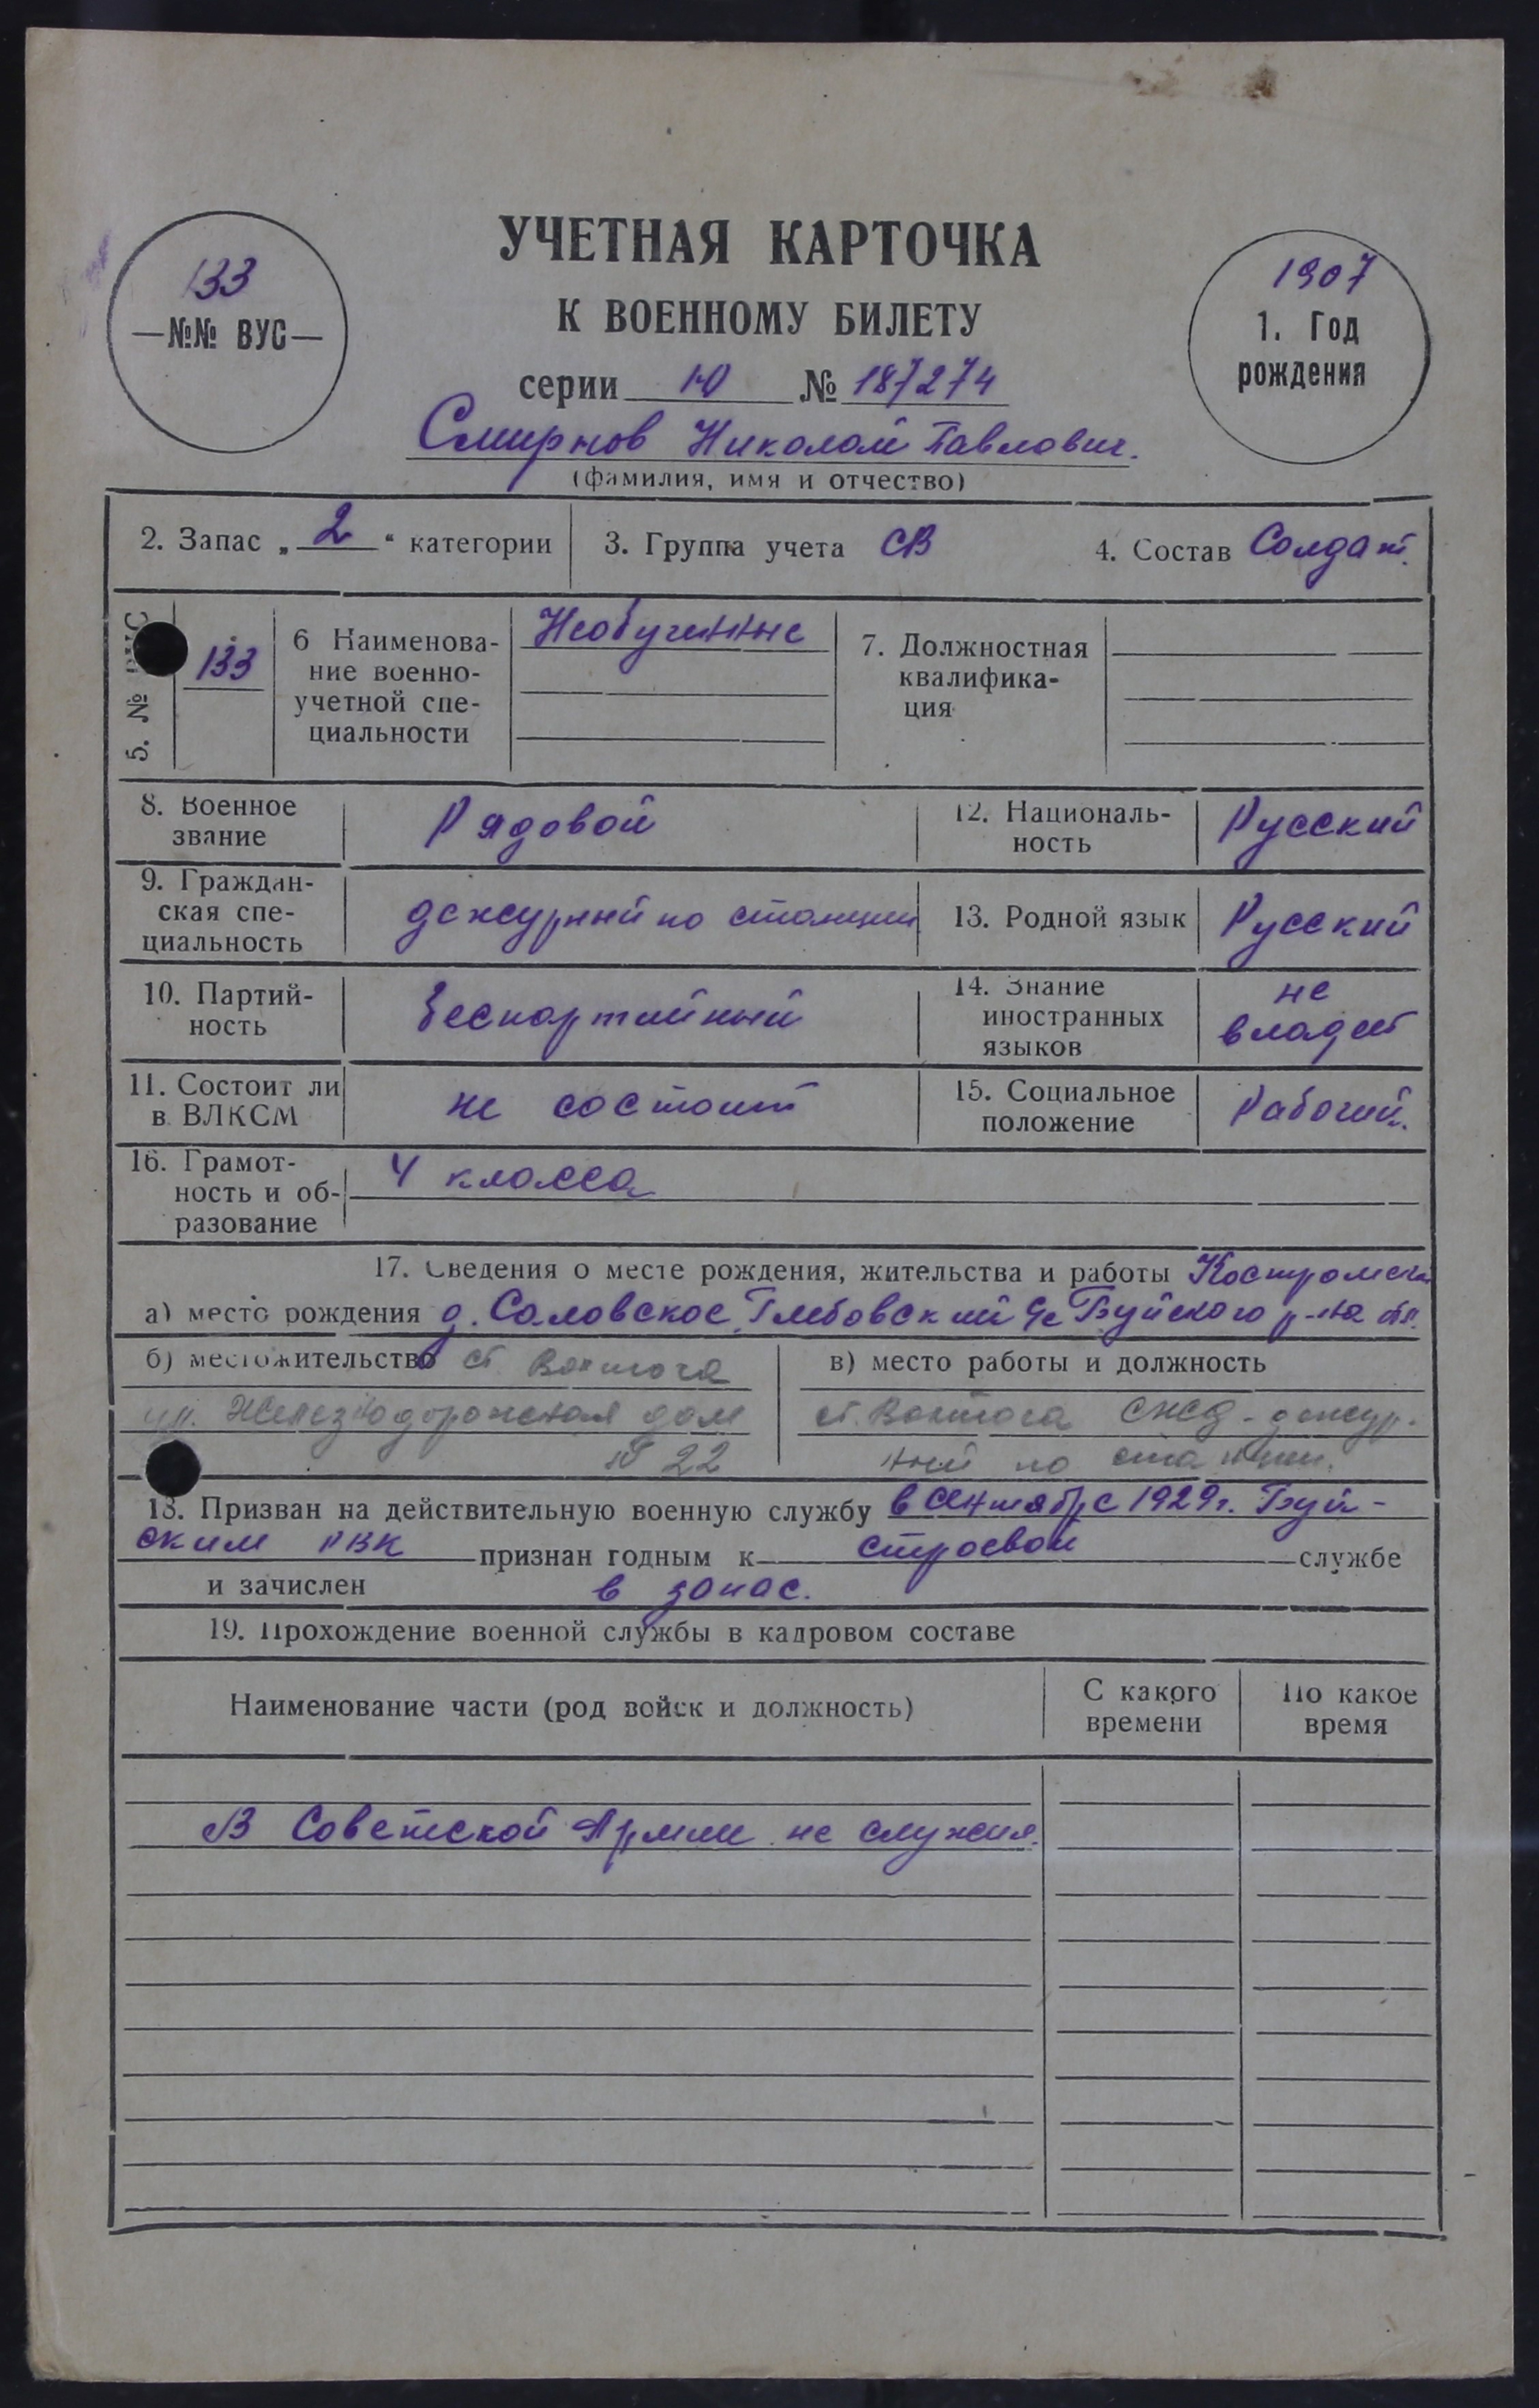 УЧЕТНАЯ КАРТОЧКА
К ВОЕННОМУ БИЛЕТУ
133
—№№ ВУС—
1907
1. Год
рождения
серии Ю № 187274
Смирнов Николай Павлович.
(фамилия, имя и отчество)
2. Запас „ 2 “ категории
3. Группа учета СВ
4. Состав Солдат.
5. №
133
6 Наименова-
ние военно-
учетной спе-
циальности
Необученные
7. Должностная
квалифика-
ция
8. Военное
звание
Рядовой
12. Националь-
ность
Русский
9. Граждан-
ская спе-
циальность
дежурный по станции
13. Родной язык
Русский
10. Партий-
ность
беспартийный
14. Знание
иностранных
языков
не
владеет
11. Состоит ли
в ВЛКСМ
не состоит
15. Социальное
положение
Рабочий.
16. Грамот-
ность и об-
разование
4 класса
17. Сведения о месте рождения, жительства и работы Костромской
а) место рождения д. Саловское, Глебовский с/с Буйского р-на обл.
б) местожительство ст. Вохтога
ул. Железнодорожная дом
№ 22
в) место работы и должность
ст. Вохтога СЖД - дежур.
ный по станции.
18. Призван на действительную военную службу в сентябре 1929г. Буй-
ским РВК признан годным к строевой службе
и зачислен в запас.
19. Прохождение военной службы в кадровом составе
Наименование части (род войск и должность)
С какого
времени
По какое
время
В Советской Армии не служил.